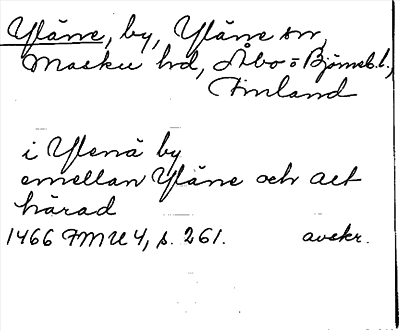 Yläne, by, Yläne sn,
Masku hd, Åbo o Björneb. l.,
Finland
i Ylenä by
emellan Yläne och alt
härad
1466 FMU 4, s. 261. avskr.